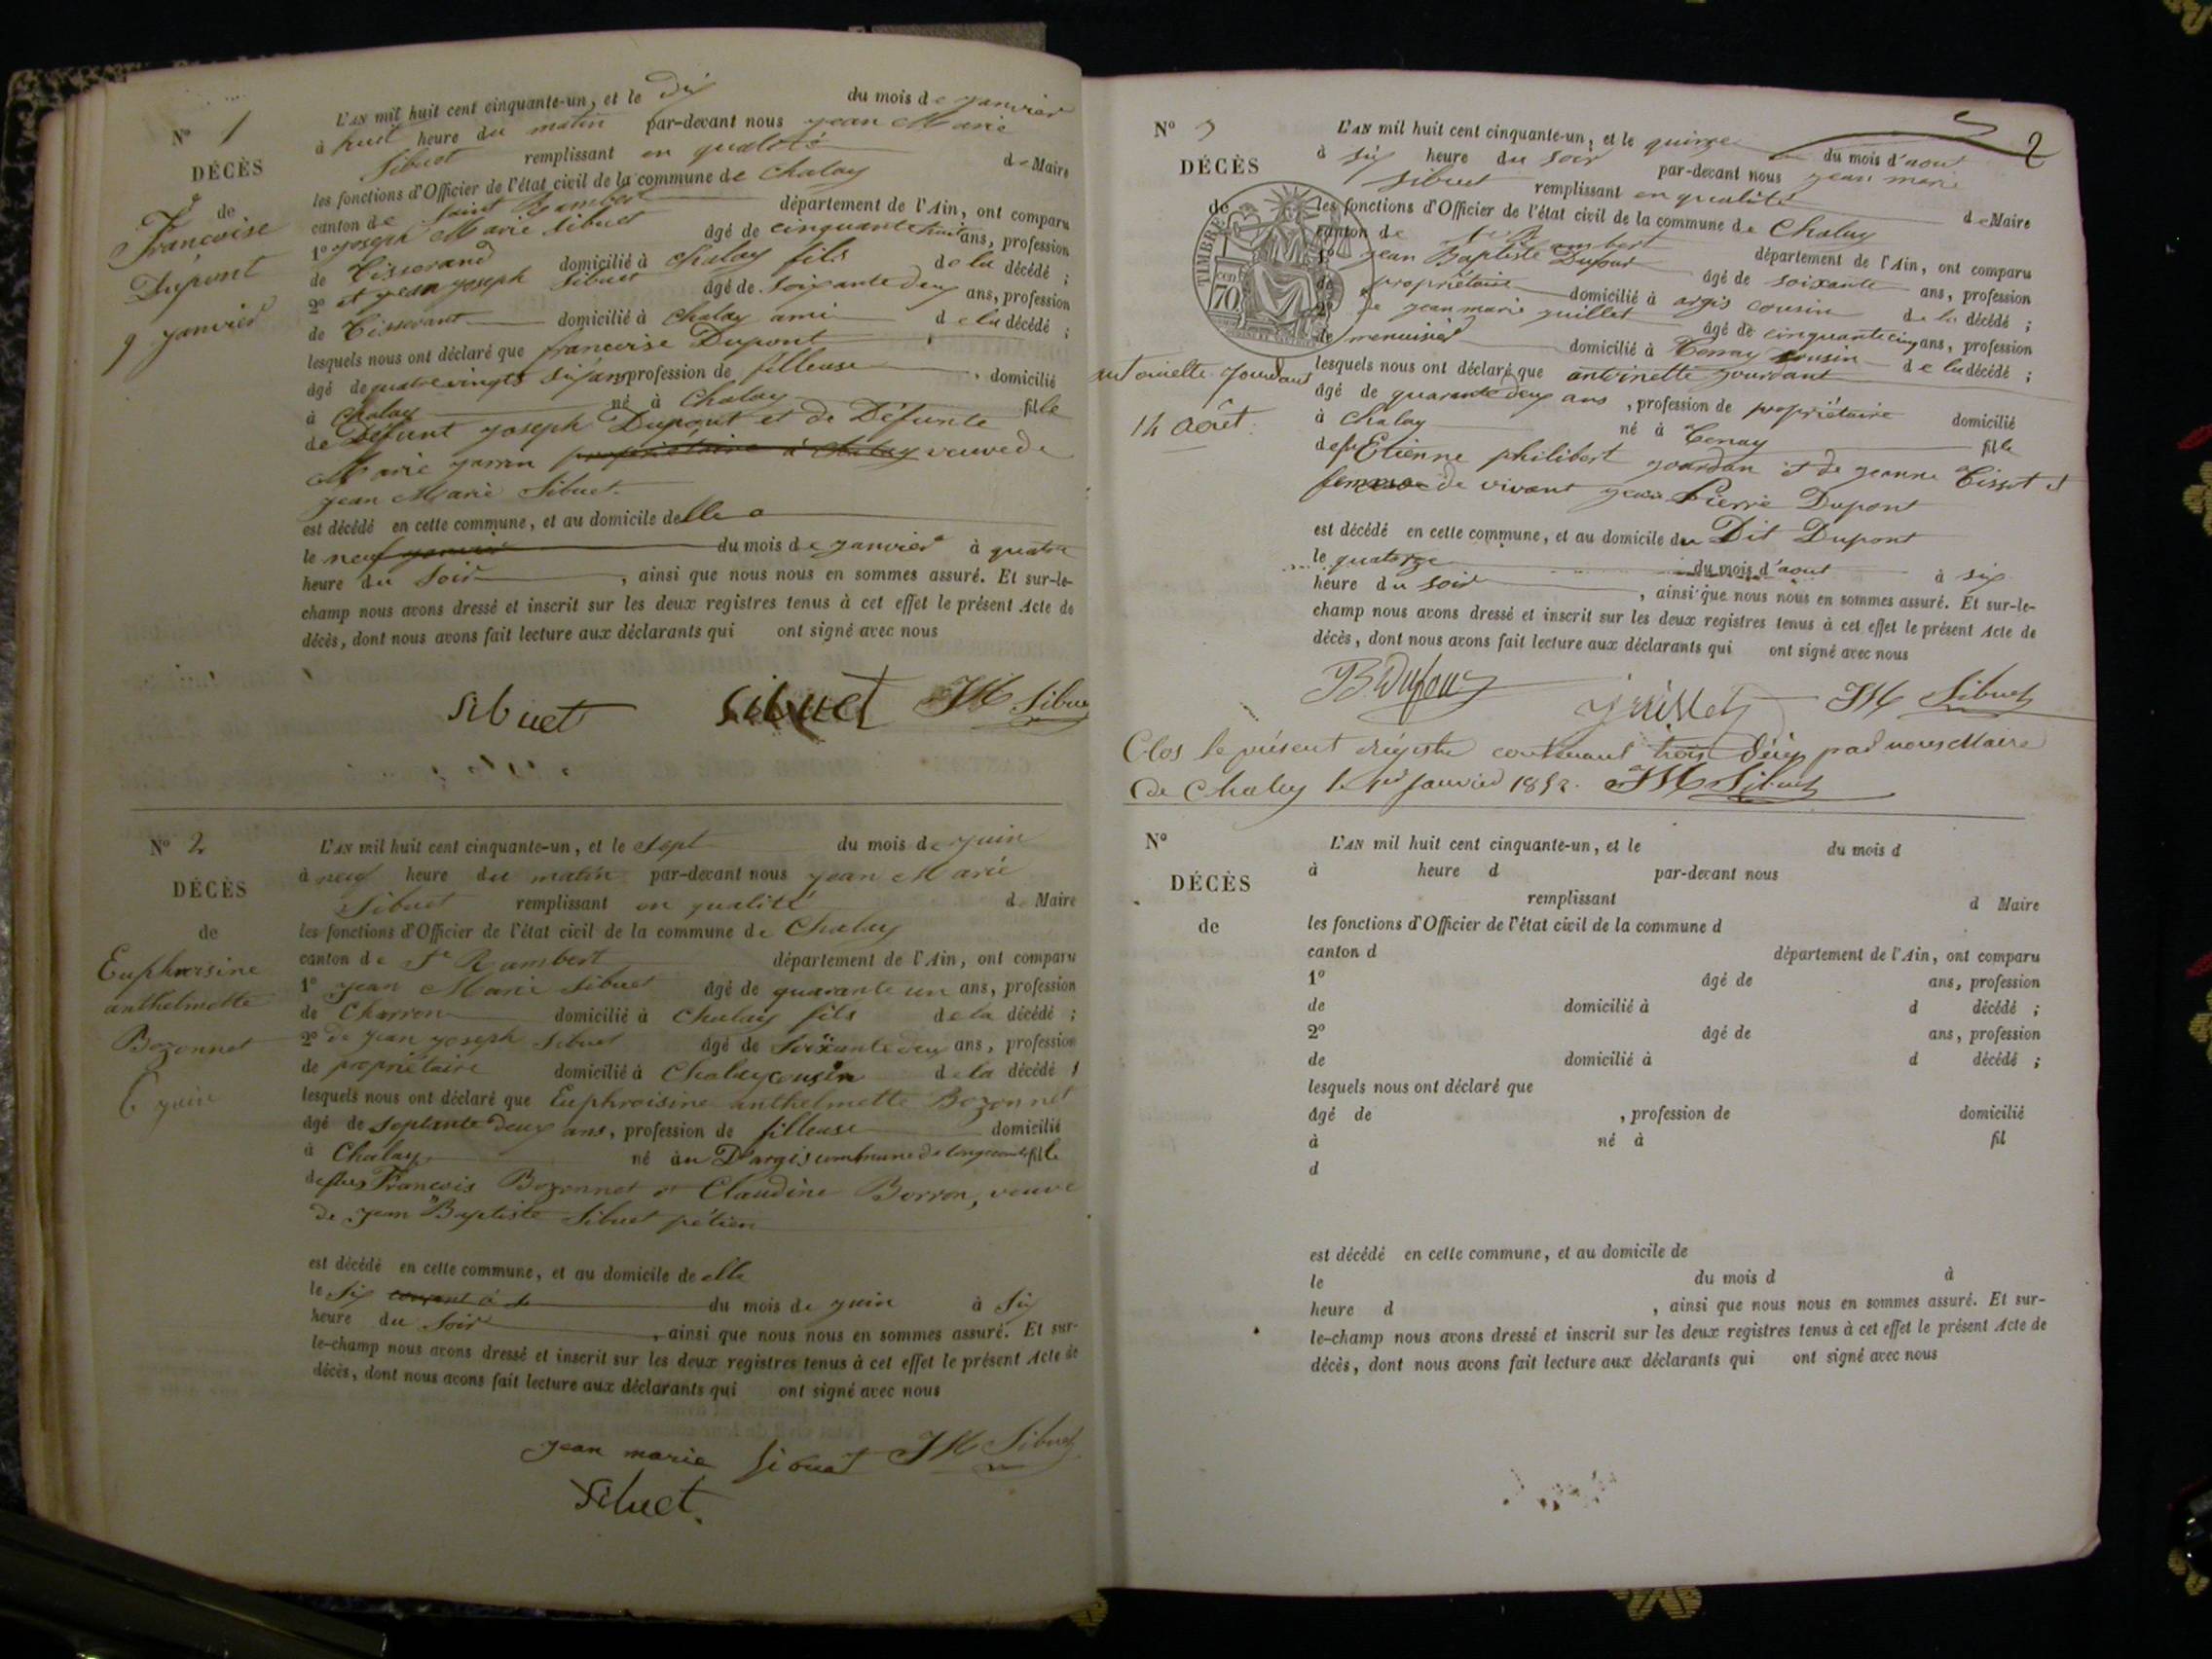 N° 1
DÉCÈS
de
Francoise
Dupont
9 janvier
L'AN mil huit cent cinquante-un, et le dix du mois de janvier
à huit heure du matin par-devant nous jean Marie
Sibuet remplissant en qualité de Maire
les fonctions d'Officier de l'état civil de la commune de Chaley
canton de Saint Rambert département de l'Ain, ont comparu
1° joseph Marie Sibuet âgé de cinquante huit ans, profession
de Tisserand domicilié à Chaley fils de la décédé ;
2° et jean joseph Sibuet âgé de Soixante deux ans, profession
de Tisserant domicilié à Chaley ami de la décédé ;
lesquels nous ont déclaré que francoise Dupont
âgé de quatre vingts six ans, profession de filleuse, domicilié
à Chaley né à Chaley fille
de Défunt joseph Dupont et de Défunte
Marie propriétaire à Chaley veuve de
jean Marie Sibuet.
est décédé en cette commune, et au domicile delle
le neuf janvier du mois de janvier à quatre
heure du Soir, ainsi que nous nous en sommes assuré. Et sur-le-
champ nous avons dressé et inscrit sur les deux registres tenus à cet effet le présent Acte de
décès, dont nous avons fait lecture aux déclarants qui ont signé avec nous
Sibuet Sibuet JM Sibuet
N° 2
DÉCÈS
de
Euphroisine
anthelmette
Bozonnet
6 juin
L'AN mil huit cent cinquante-un, et le Sept du mois de juin
à neuf heure du matin par-devant nous jean Marie
Sibuet remplissant en qualité de Maire
les fonctions d'Officier de l'état civil de la commune de Chaley
canton de St Rambert département de l'Ain, ont comparu
1° jean Marie Sibuet âgé de quarante un ans, profession
de Charron domicilié à Chaley fils de la décédé ;
2° de jean joseph Sibuet âgé de Soixante deux ans, profession
de propriétaire domicilié à Chaley cousin de la décédé ;
lesquels nous ont déclaré que Euphroisine anthelmette Bozonnet
âgé de Septante deux ans, profession de filleuse domicilié
à Chaley né au D'argis commune de fille
de feu Francois Bozonnet et Claudine Borron, veuve
de jean Baptiste Sibuet
est décédé en cette commune, et au domicile de elle
le Six courant à du mois de juin à Six
heure du Soir, ainsi que nous nous en sommes assuré. Et sur-
le-champ nous avons dressé et inscrit sur les deux registres tenus à cet effet le présent Acte de
décès, dont nous avons fait lecture aux déclarants qui ont signé avec nous
jean marie Sibuet JM Sibuet
Sibuet
2
N° 3
DÉCÈS
de
TIMBRE
70
antoinette jourdant
14 Août.
L'AN mil huit cent cinquante-un, et le quinze du mois d'aout
à six heure du soir par-devant nous jean marie
Sibuet remplissant en qualité de Maire
les fonctions d'Officier de l'état civil de la commune de Chaley
canton de St Rambert département de l'Ain, ont comparu
1° jean Baptiste Dufour âgé de soixante ans, profession
de propriétaire domicilié à argis cousin de la décédé ;
2° jean marie guillet âgé de cinquante cinq ans, profession
de menuisier domicilié à Tenay cousin de la décédé ;
lesquels nous ont déclaré que antoinette jourdant
âgé de quarante deux ans, profession de propriétaire domicilié
à Chaley né à Tenay fille
de feu Etienne philibert jourdan et de jeanne Tissot et
femme de vivant jean Pierre Dupont
est décédé en cette commune, et au domicile du Dit Dupont
le quatorze du mois d'aout à six
heure du soir, ainsi que nous nous en sommes assuré. Et sur-le-
champ nous avons dressé et inscrit sur les deux registres tenus à cet effet le présent Acte de
décès, dont nous avons fait lecture aux déclarants qui ont signé avec nous
B Dufour guillet JM Sibuet
Clos le présent régistre contenant trois Décès par nous Maire
de Chaley le 1er Janvier 1852. JM Sibuet
N°
DÉCÈS
de
L'AN mil huit cent cinquante-un, et le du mois d
à heure d par-devant nous
remplissant d Maire
les fonctions d'Officier de l'état civil de la commune d
canton d département de l'Ain, ont comparu
1° âgé de ans, profession
de domicilié à d décédé ;
2° âgé de ans, profession
de domicilié à d décédé ;
lesquels nous ont déclaré que
âgé de , profession de domicilié
à né à fil
d
est décédé en cette commune, et au domicile de
le du mois d à
heure d , ainsi que nous nous en sommes assuré. Et sur-
le-champ nous avons dressé et inscrit sur les deux registres tenus à cet effet le présent Acte de
décès, dont nous avons fait lecture aux déclarants qui ont signé avec nous